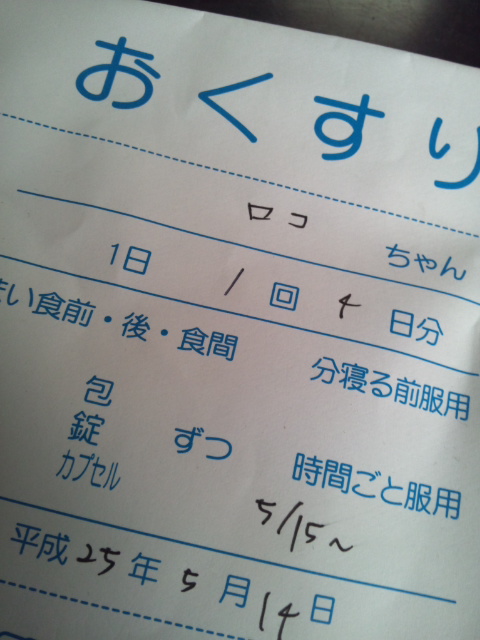 おくすり
ロコ ちゃん
1日 1 回 4 日分
食前・後・食間 分寝る前服用
包
錠 ずつ 時間ごと服用
カプセル
5/15~
平成 25 年 5 月 14 日